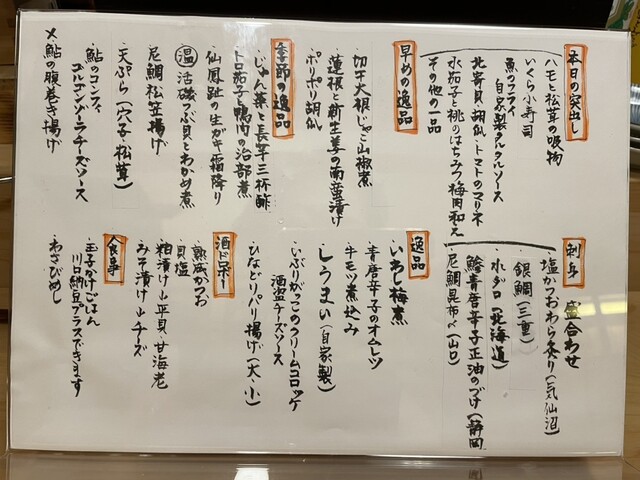 本日の突出し
ハモと松茸の吸物
いくら小寿司
魚のフライ 自家製タルタルソース
北寄貝・胡瓜・トマトのマリネ
水茄子と桃のはちみつ梅肉和え
その他の一品
早めの逸品
・切干大根じゃこ山椒煮
・蓮根と新生姜の南蛮漬け
・ポリポリ胡瓜
季節の逸品
・じゅん菜と長芋三杯酢
・トロ茄子と鴨肉の治部煮
・仙鳳趾の生ガキ霜降り
・温 活磯つぶ貝とわかめ煮
・尼鯛松笠揚げ
・天ぷら(穴子・松茸)
・鮎のコンフィ
ゴルゴンゾーラチーズソース
×鮎の腹巻き揚げ
刺身 盛合わせ
・塩かつおわら炙り(気仙沼)
・銀鯛(三重)
・水ダコ(北海道)
・鯵青唐辛子正油のづけ(静岡)
・尼鯛昆布〆(山口)
逸品
・いわし梅煮
・青唐辛子のオムレツ
・牛モツ煮込み
・しうまい(自家製)
・いぶりがっこのクリームコロッケ
酒盗チーズソース
・ひなどりパリパリ揚げ(大・小)
酒ドロボー
・熟成かつお
・貝塩
・粕漬け→平貝・甘海老
・みそ漬け→チーズ
食事
・玉子かけごはん
川口納豆プラスできます
・わさびめし